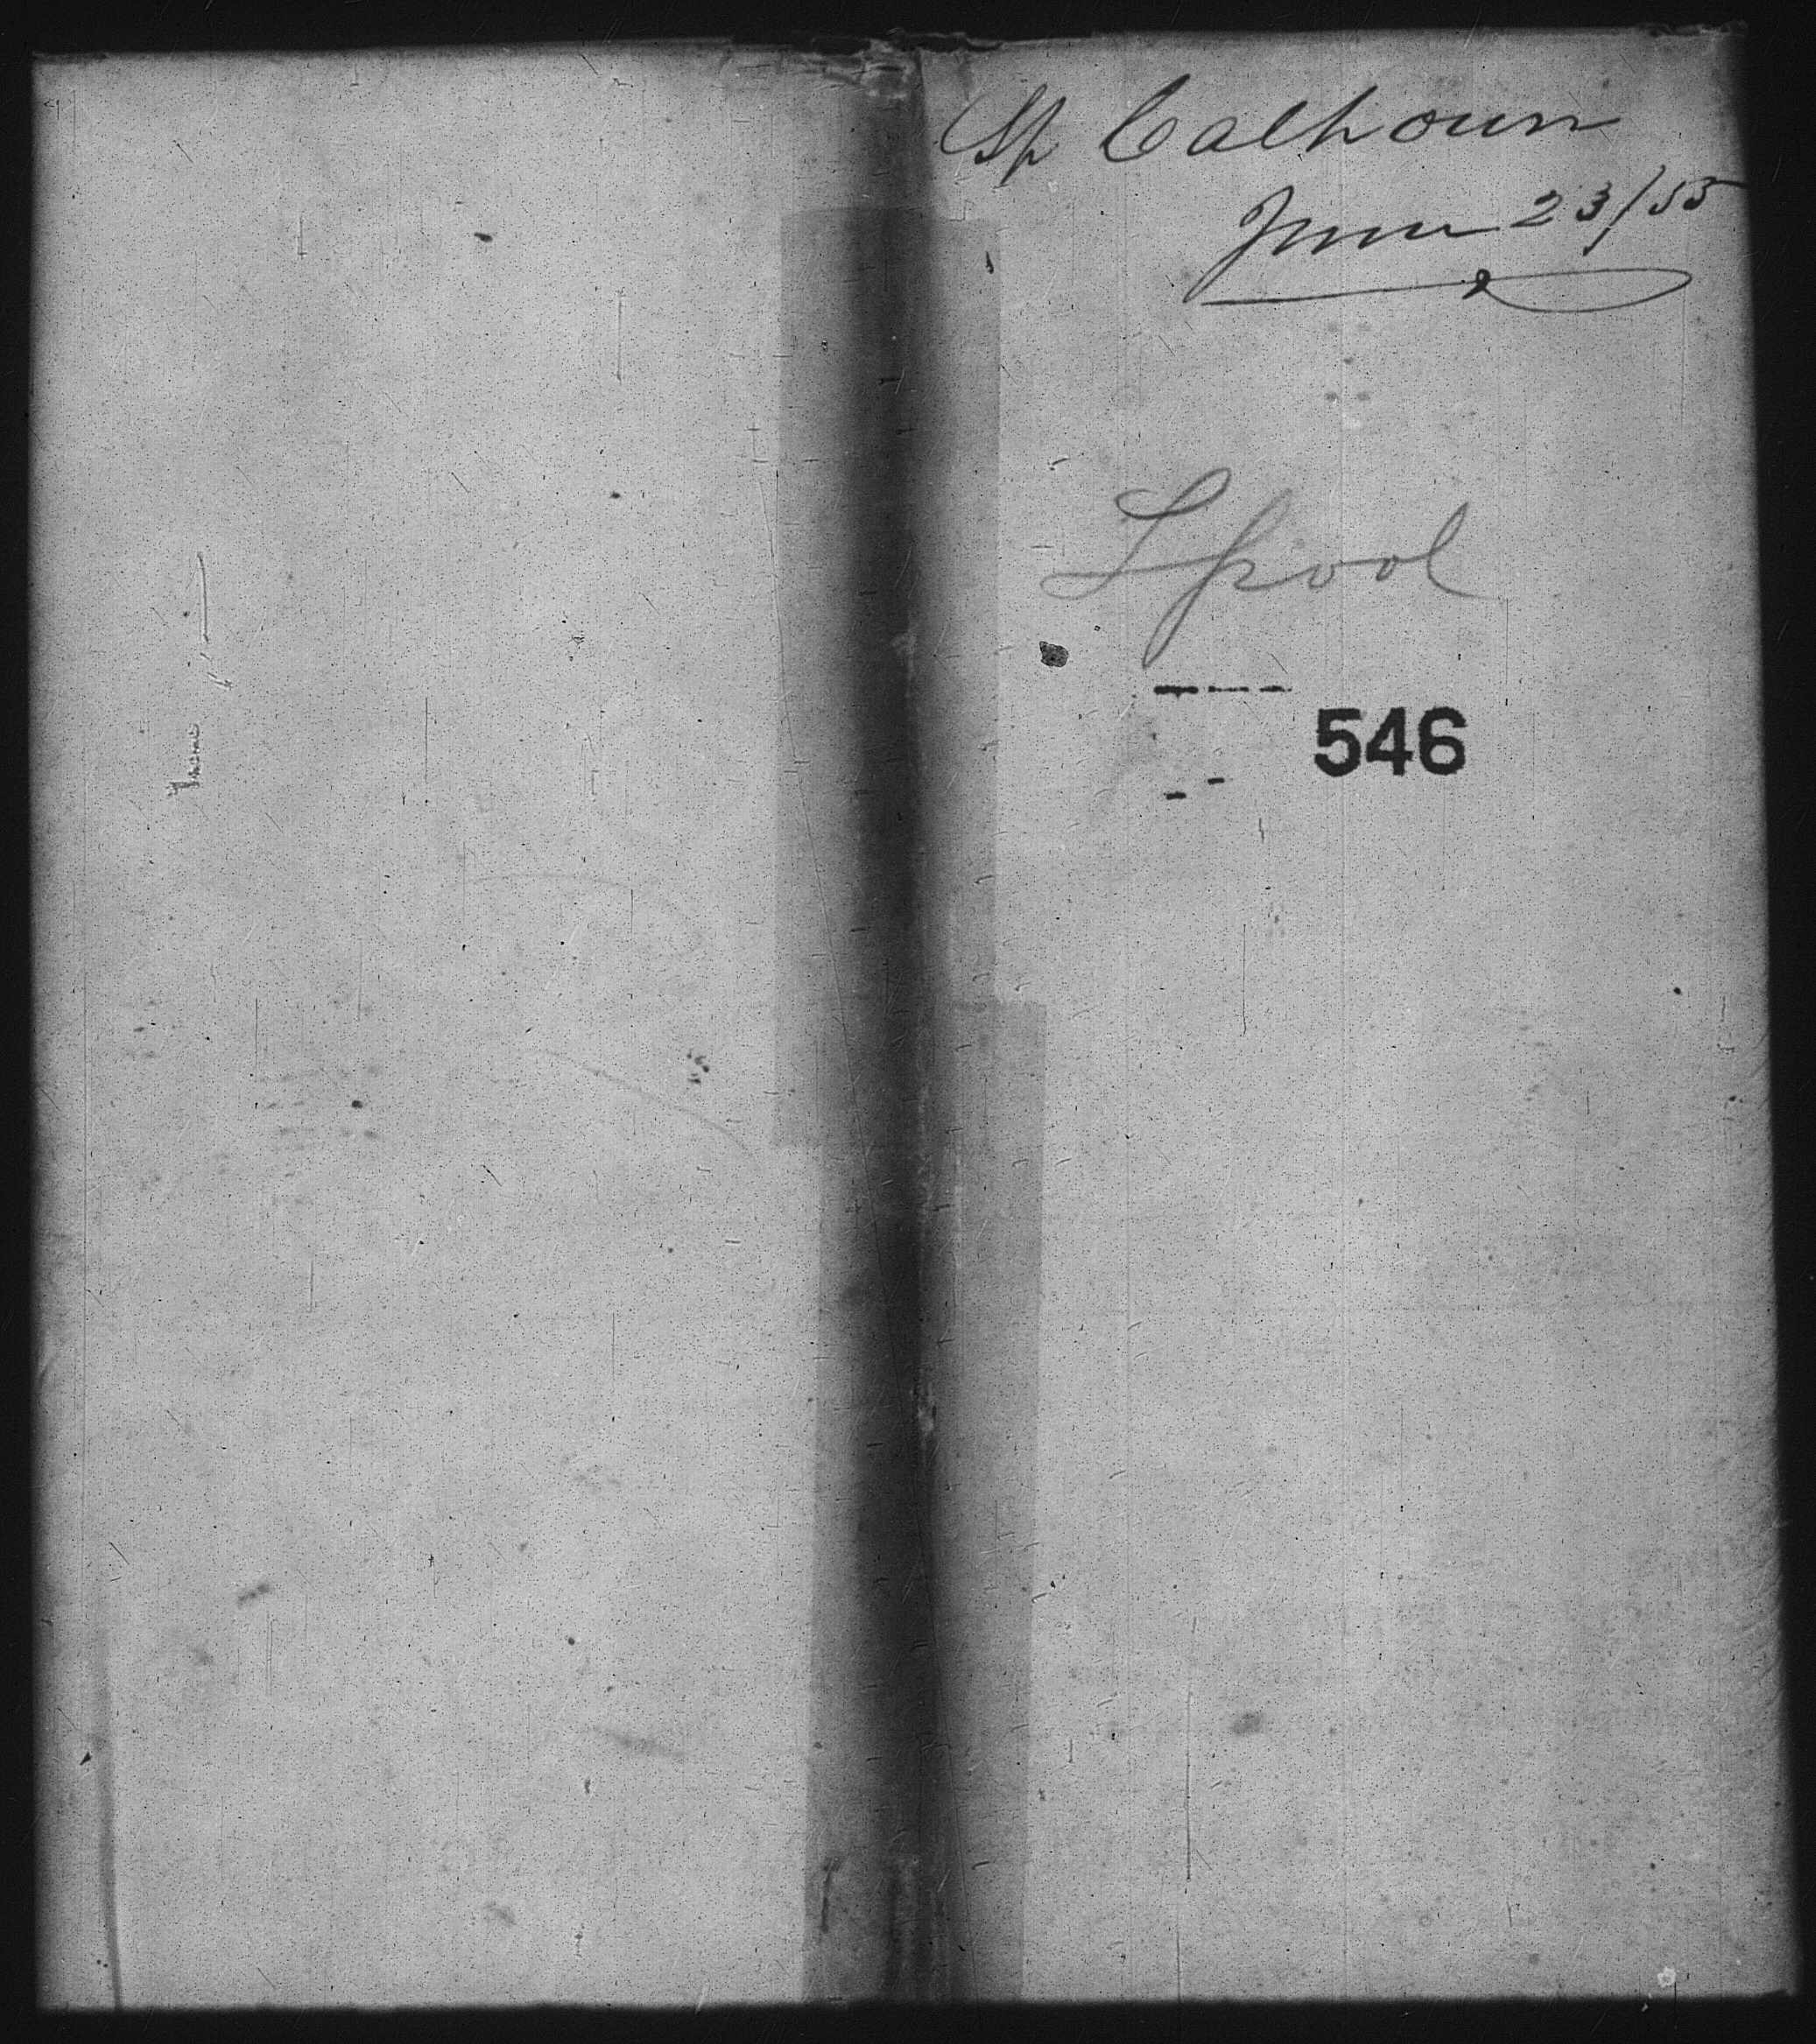 Sp Calhoun
June 23/55
Lpool
546